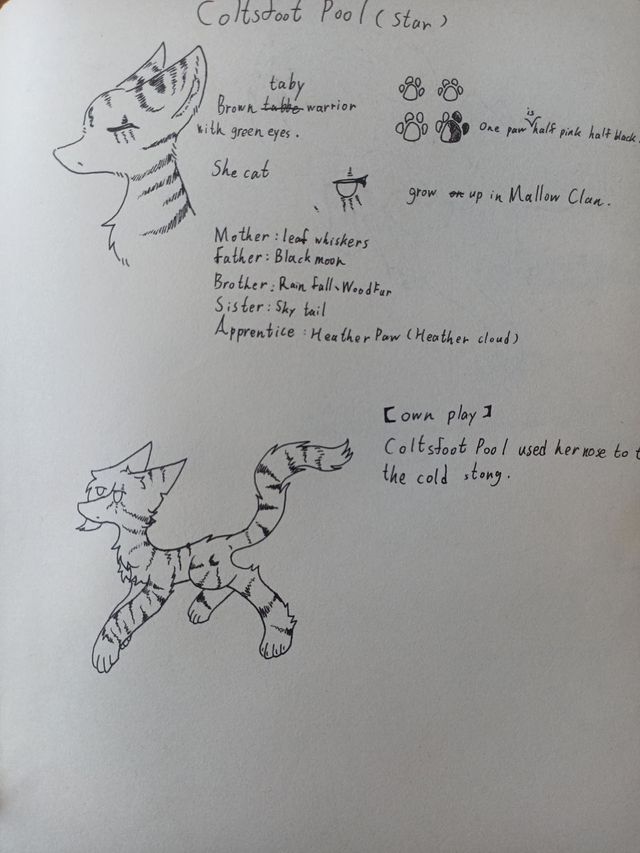 Coltsfoot Pool (star)
taby
Brown tabbe warrior
with green eyes.
is
One paw half pink half black.
She cat
grow on up in Mallow Clan.
Mother : leaf whiskers
Father : Black moon
Brother : Rain fall、Wood Fur
Sister : Sky tail
Apprentice : Heather Paw (Heather cloud)
【own play】
Coltsfoot Pool used her nose to t
the cold stong.